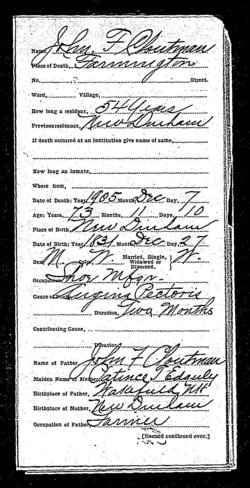 Name, John F Cloutman
Place of Death, Farmington
No. Street.
Ward, Village,
How long a resident, 54 Years
Previous residence, New Durham
If death occurred at an institution give name of same,
How long an inmate,
Where from,
Date of Death: Year, 1905 Month, Dec Day, 7
Age: Years, 73 Months, 11 Days, 10
Place of Birth New Durham
Date of Birth: Year, 1831 Month, Dec Day, 27
Sex, M W Married, Single, Widowed or Divorced, W.
Occupation Shoe Mfgr.
Cause of Angina Pectoris
Duration, Two Months
Contributing Cause,
Duration,
Name of Father, John F Cloutman
Maiden Name of Mother Patience Edgerly
Birthplace of Father, Wakefield NH
Birthplace of Mother, New Durham
Occupation of Father, Farmer
[Record continued over.]